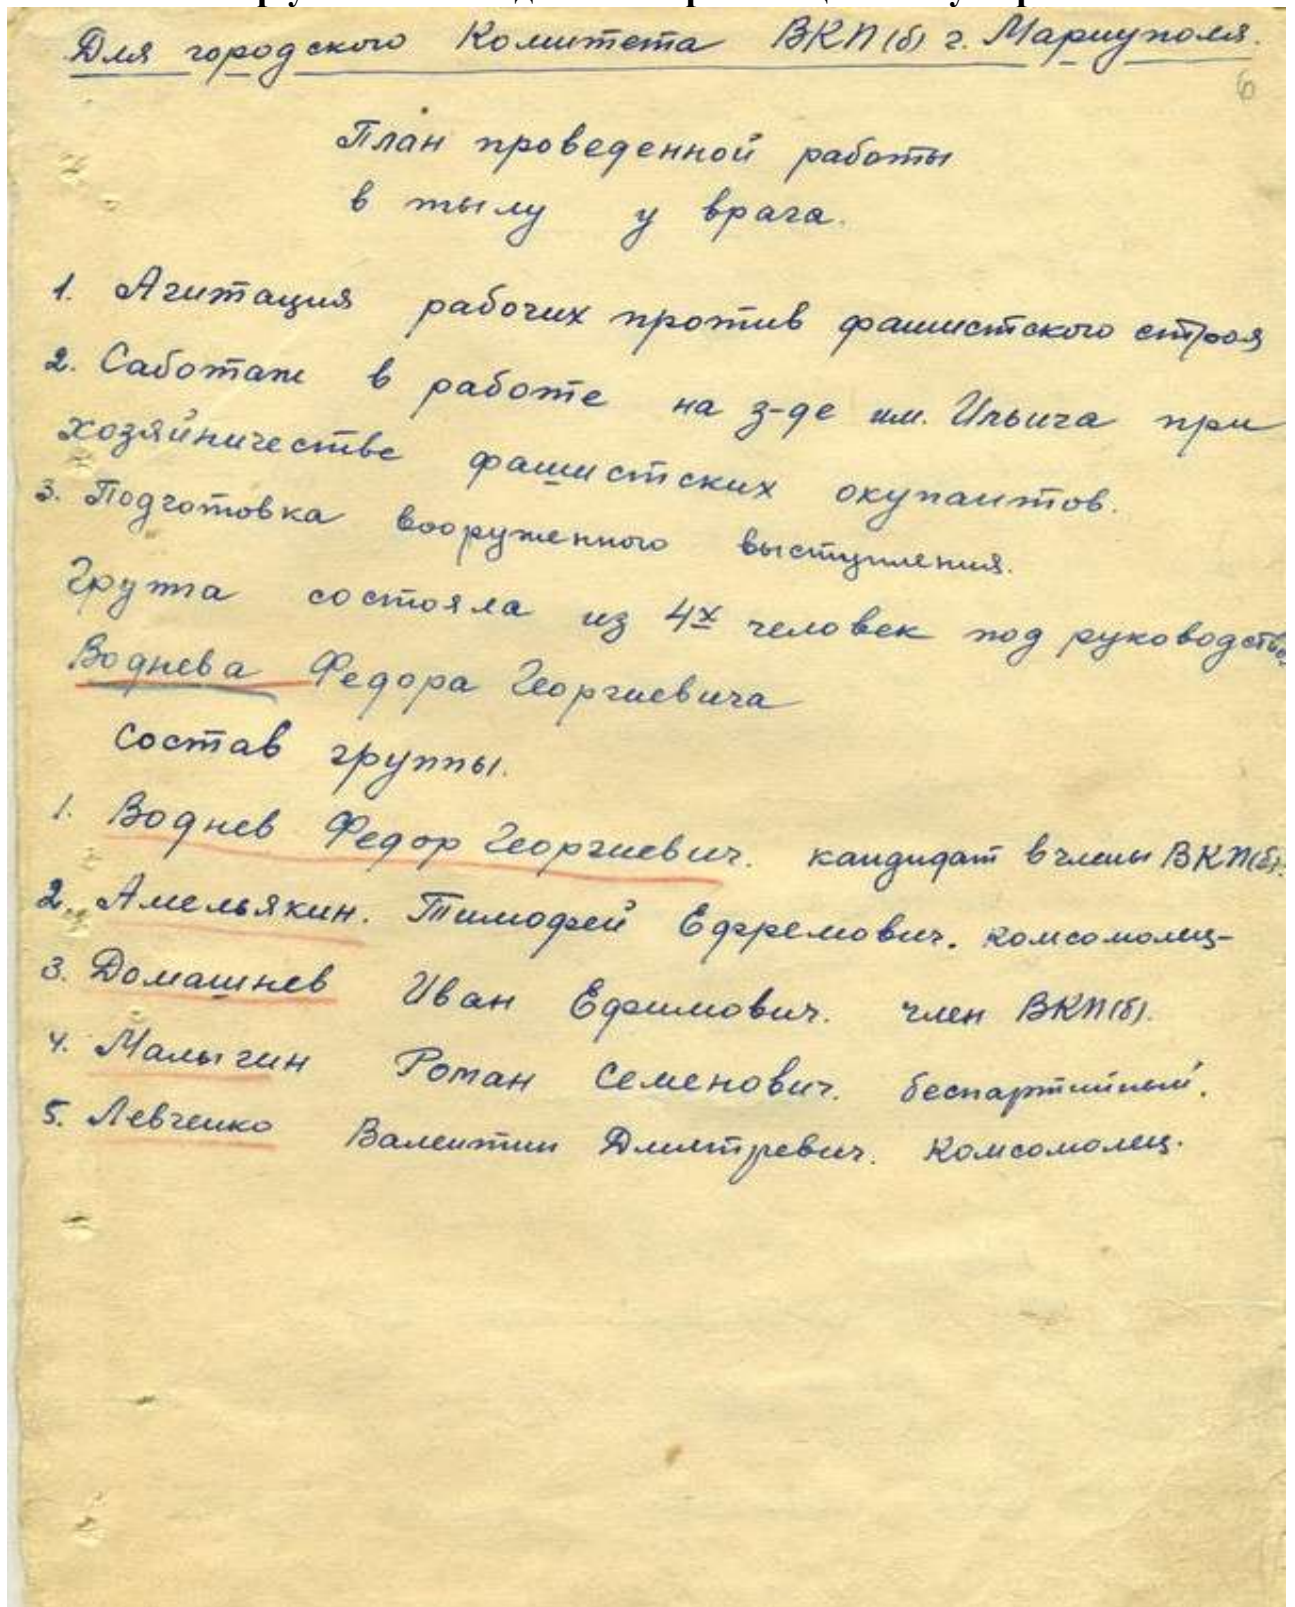 Для городского Комитета ВКП(б) г. Мариуполя.
6
План проведенной работы
в тылу у врага.
1. Агитация рабочих против фашистского строя
2. Саботаж в работе на з-де им. Ильича при
хозяйничестве фашистских окупантов.
3. Подготовка вооруженного выступления.
Группа состояла из 4х человек под руководство
Воднева Федора Георгиевича
Состав группы.
1. Воднев Федор Георгиевич. кандидат в члены ВКП(б).
2. Амельякин. Тимофей Ефремович. комсомолец-
3. Домашнев Иван Ефимович. член ВКП(б).
4. Малыгин Роман Семенович. беспартийный.
5. Левченко Валентин Дмитревич. Комсомолец.